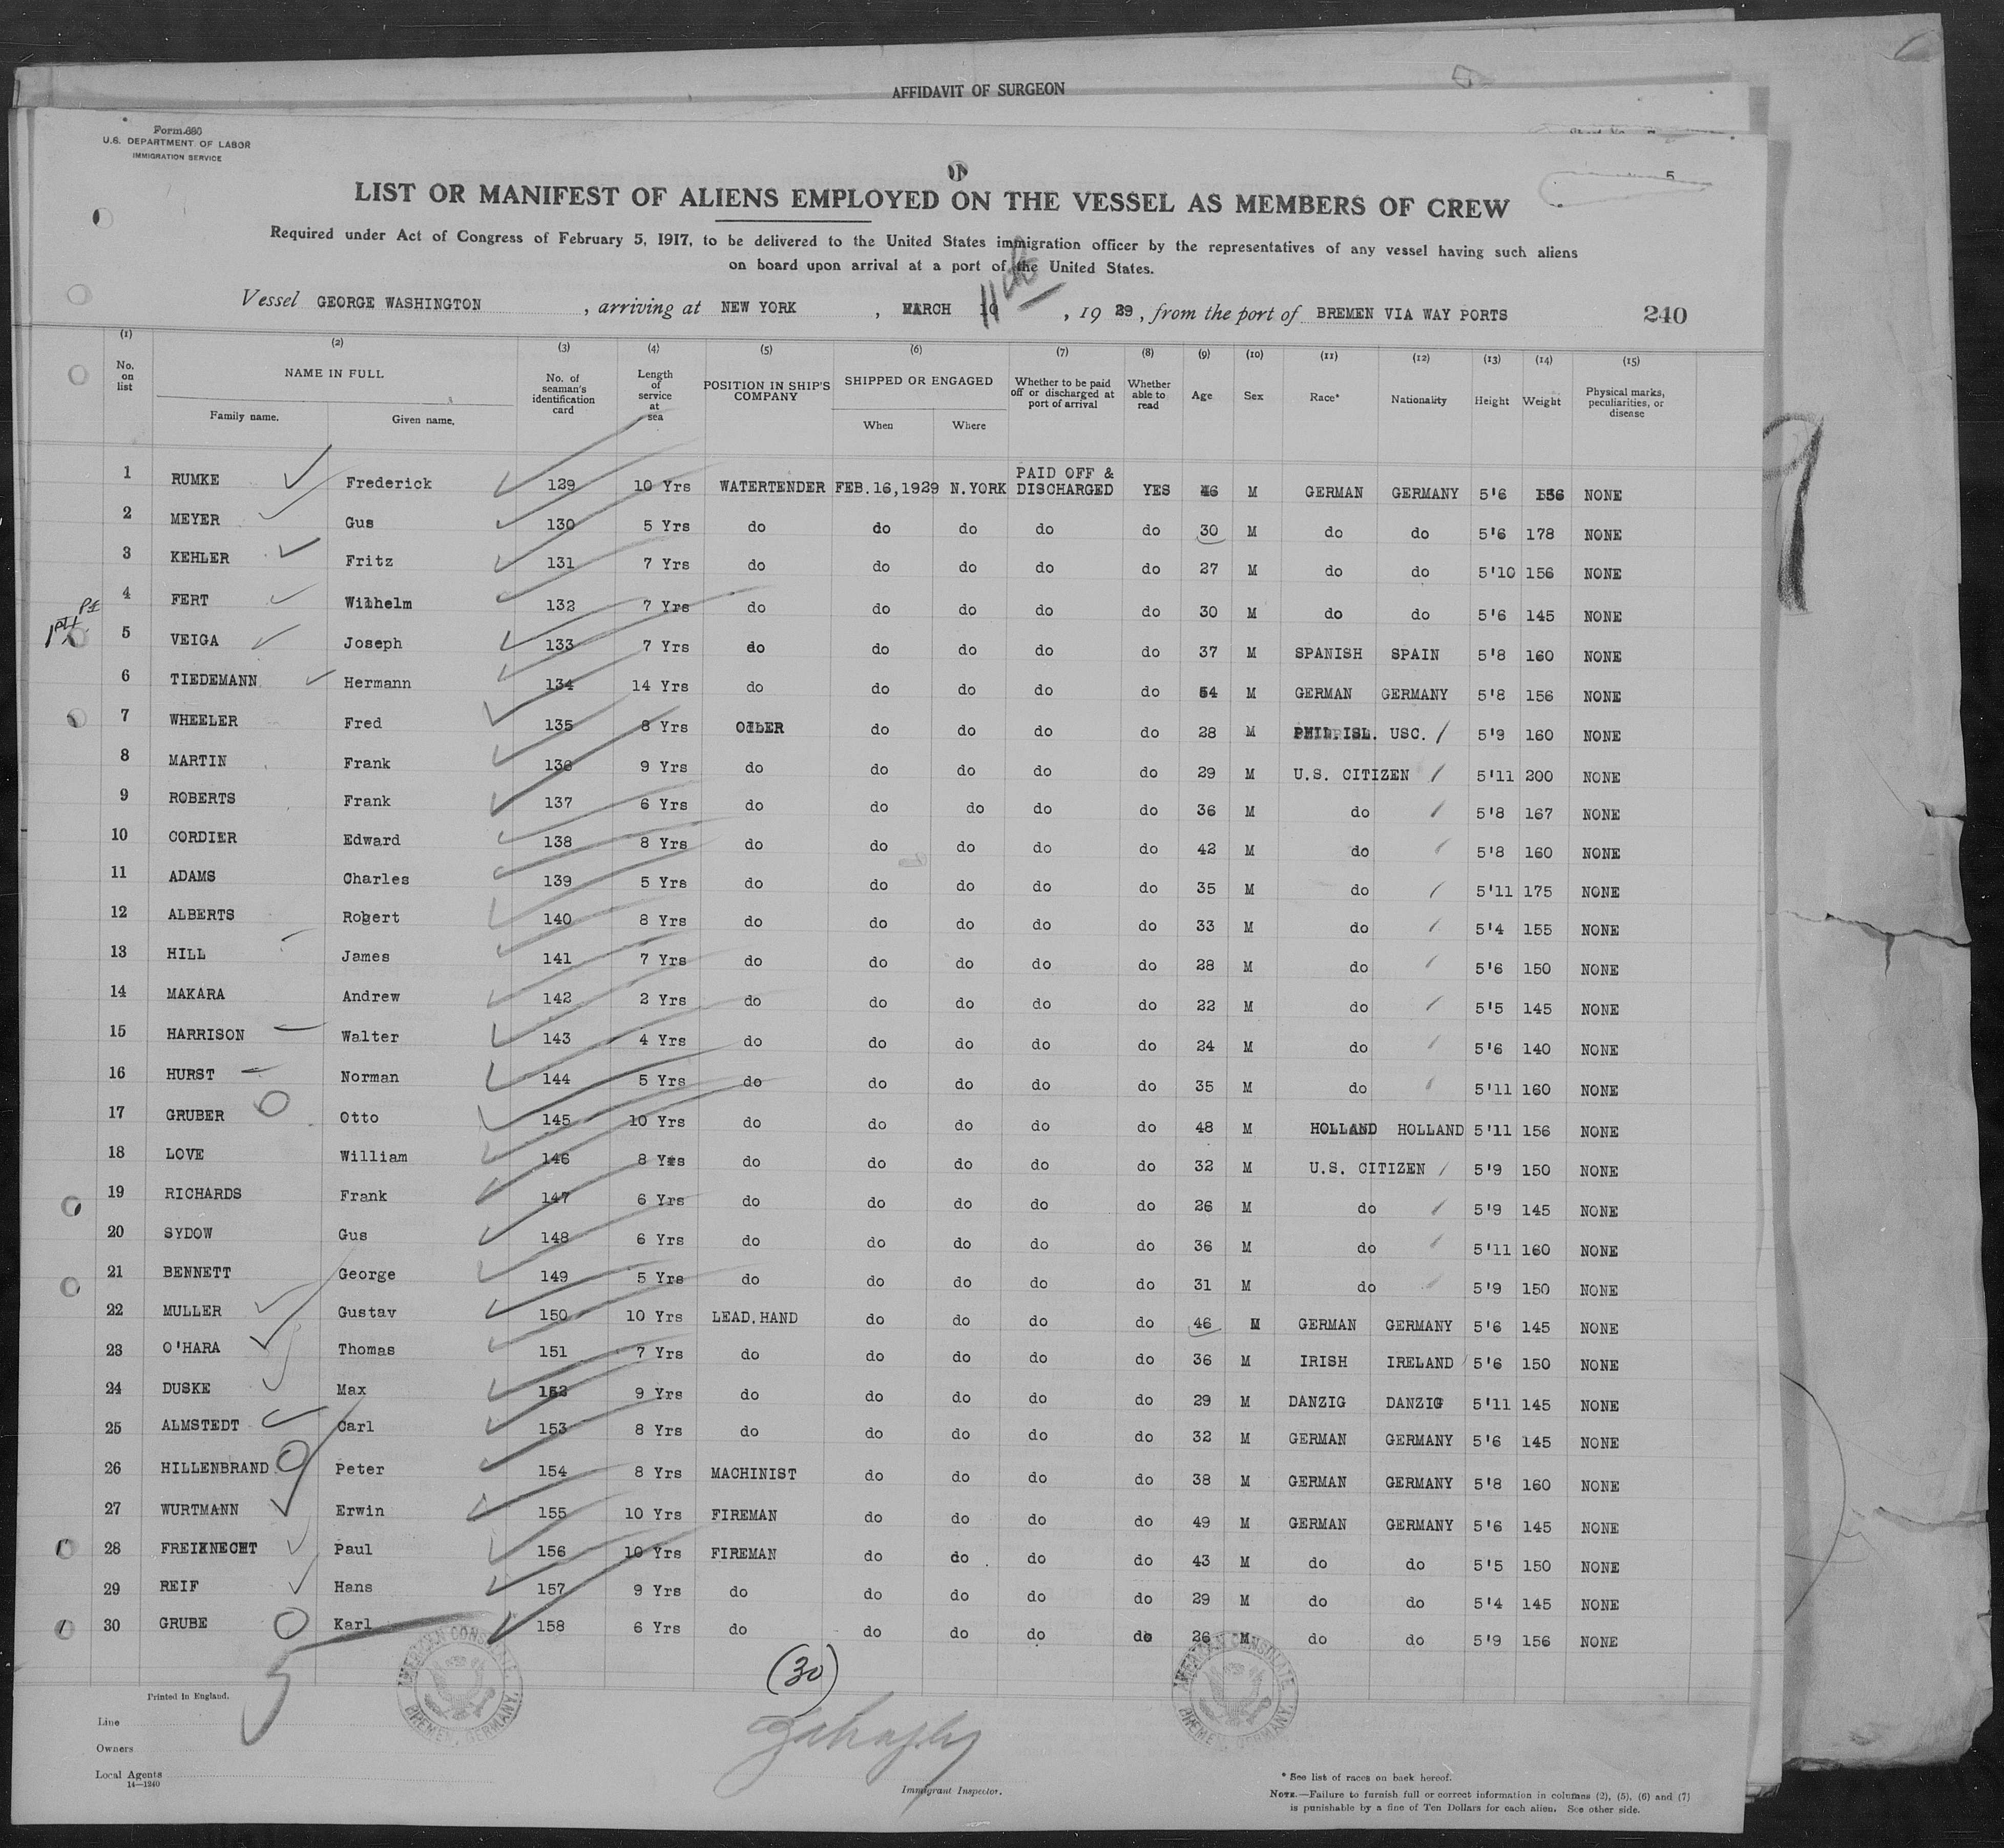 AFFIDAVIT OF SURGEON
Form 680
U.S. DEPARTMENT OF LABOR
IMMIGRATION SERVICE
5
LIST OR MANIFEST OF ALIENS EMPLOYED ON THE VESSEL AS MEMBERS OF CREW
Required under Act of Congress of February 5, 1917, to be delivered to the United States immigration officer by the representatives of any vessel having such aliens
on board upon arrival at a port of the United States.
Vessel GEORGE WASHINGTON , arriving at NEW YORK , MARCH 11th , 19 29 , from the port of BREMEN VIA WAY PORTS 240
(1) (2) (3) (4) (5) (6) (7) (8) (9) (10) (11) (12) (13) (14) (15)
No. on list NAME IN FULL Family name. Given name. No. of seaman's identification card Length of service at sea POSITION IN SHIP'S COMPANY SHIPPED OR ENGAGED When Where Whether to be paid off or discharged at port of arrival Whether able to read Age Sex Race* Nationality Height Weight Physical marks, peculiarities, or disease
1 RUMKE Frederick 129 10 Yrs WATERTENDER FEB.16,1929 N.YORK PAID OFF & DISCHARGED YES 46 M GERMAN GERMANY 5'6 156 NONE
2 MEYER Gus 130 5 Yrs do do do do do 30 M do do 5'6 178 NONE
3 KEHLER Fritz 131 7 Yrs do do do do do 27 M do do 5'10 156 NONE
4 FERT Wilhelm 132 7 Yrs do do do do do 30 M do do 5'6 145 NONE
5 VEIGA Joseph 133 7 Yrs do do do do do 37 M SPANISH SPAIN 5'8 160 NONE
6 TIEDEMANN Hermann 134 14 Yrs do do do do do 54 M GERMAN GERMANY 5'8 156 NONE
7 WHEELER Fred 135 8 Yrs OILER do do do do 28 M PHIL.ISL. USC. 5'9 160 NONE
8 MARTIN Frank 136 9 Yrs do do do do do 29 M U.S. CITIZEN 5'11 200 NONE
9 ROBERTS Frank 137 6 Yrs do do do do do 36 M do 5'8 167 NONE
10 CORDIER Edward 138 8 Yrs do do do do do 42 M do 5'8 160 NONE
11 ADAMS Charles 139 5 Yrs do do do do do 35 M do 5'11 175 NONE
12 ALBERTS Robert 140 8 Yrs do do do do do 33 M do 5'4 155 NONE
13 HILL James 141 7 Yrs do do do do do 28 M do 5'6 150 NONE
14 MAKARA Andrew 142 2 Yrs do do do do do 22 M do 5'5 145 NONE
15 HARRISON Walter 143 4 Yrs do do do do do 24 M do 5'6 140 NONE
16 HURST Norman 144 5 Yrs do do do do do 35 M do 5'11 160 NONE
17 GRUBER Otto 145 10 Yrs do do do do do 48 M HOLLAND HOLLAND 5'11 156 NONE
18 LOVE William 146 8 Yrs do do do do do 32 M U.S. CITIZEN 5'9 150 NONE
19 RICHARDS Frank 147 6 Yrs do do do do do 26 M do 5'9 145 NONE
20 SYDOW Gus 148 6 Yrs do do do do do 36 M do 5'11 160 NONE
21 BENNETT George 149 5 Yrs do do do do do 31 M do 5'9 150 NONE
22 MULLER Gustav 150 10 Yrs LEAD.HAND do do do do 46 M GERMAN GERMANY 5'6 145 NONE
23 O'HARA Thomas 151 7 Yrs do do do do do 36 M IRISH IRELAND 5'6 150 NONE
24 DUSKE Max 152 9 Yrs do do do do do 29 M DANZIG DANZIG 5'11 145 NONE
25 ALMSTEDT Carl 153 8 Yrs do do do do do 32 M GERMAN GERMANY 5'6 145 NONE
26 HILLENBRAND Peter 154 8 Yrs MACHINIST do do do do 38 M GERMAN GERMANY 5'8 160 NONE
27 WURTMANN Erwin 155 10 Yrs FIREMAN do do do do 49 M GERMAN GERMANY 5'6 145 NONE
28 FREIKNECHT Paul 156 10 Yrs FIREMAN do do do do 43 M do do 5'5 150 NONE
29 REIF Hans 157 9 Yrs do do do do do 29 M do do 5'4 145 NONE
30 GRUBE Karl 158 6 Yrs do do do do do 26 M do do 5'9 156 NONE
AMERICAN CONSULATE BREMEN, GERMANY.
(30)
AMERICAN CONSULATE BREMEN, GERMANY.
Printed in England.
Line
Owners
Local Agents
14—1240
Immigrant Inspector.
* See list of races on back hereof.
NOTE.—Failure to furnish full or correct information in columns (2), (5), (6) and (7)
is punishable by a fine of Ten Dollars for each alien. See other side.